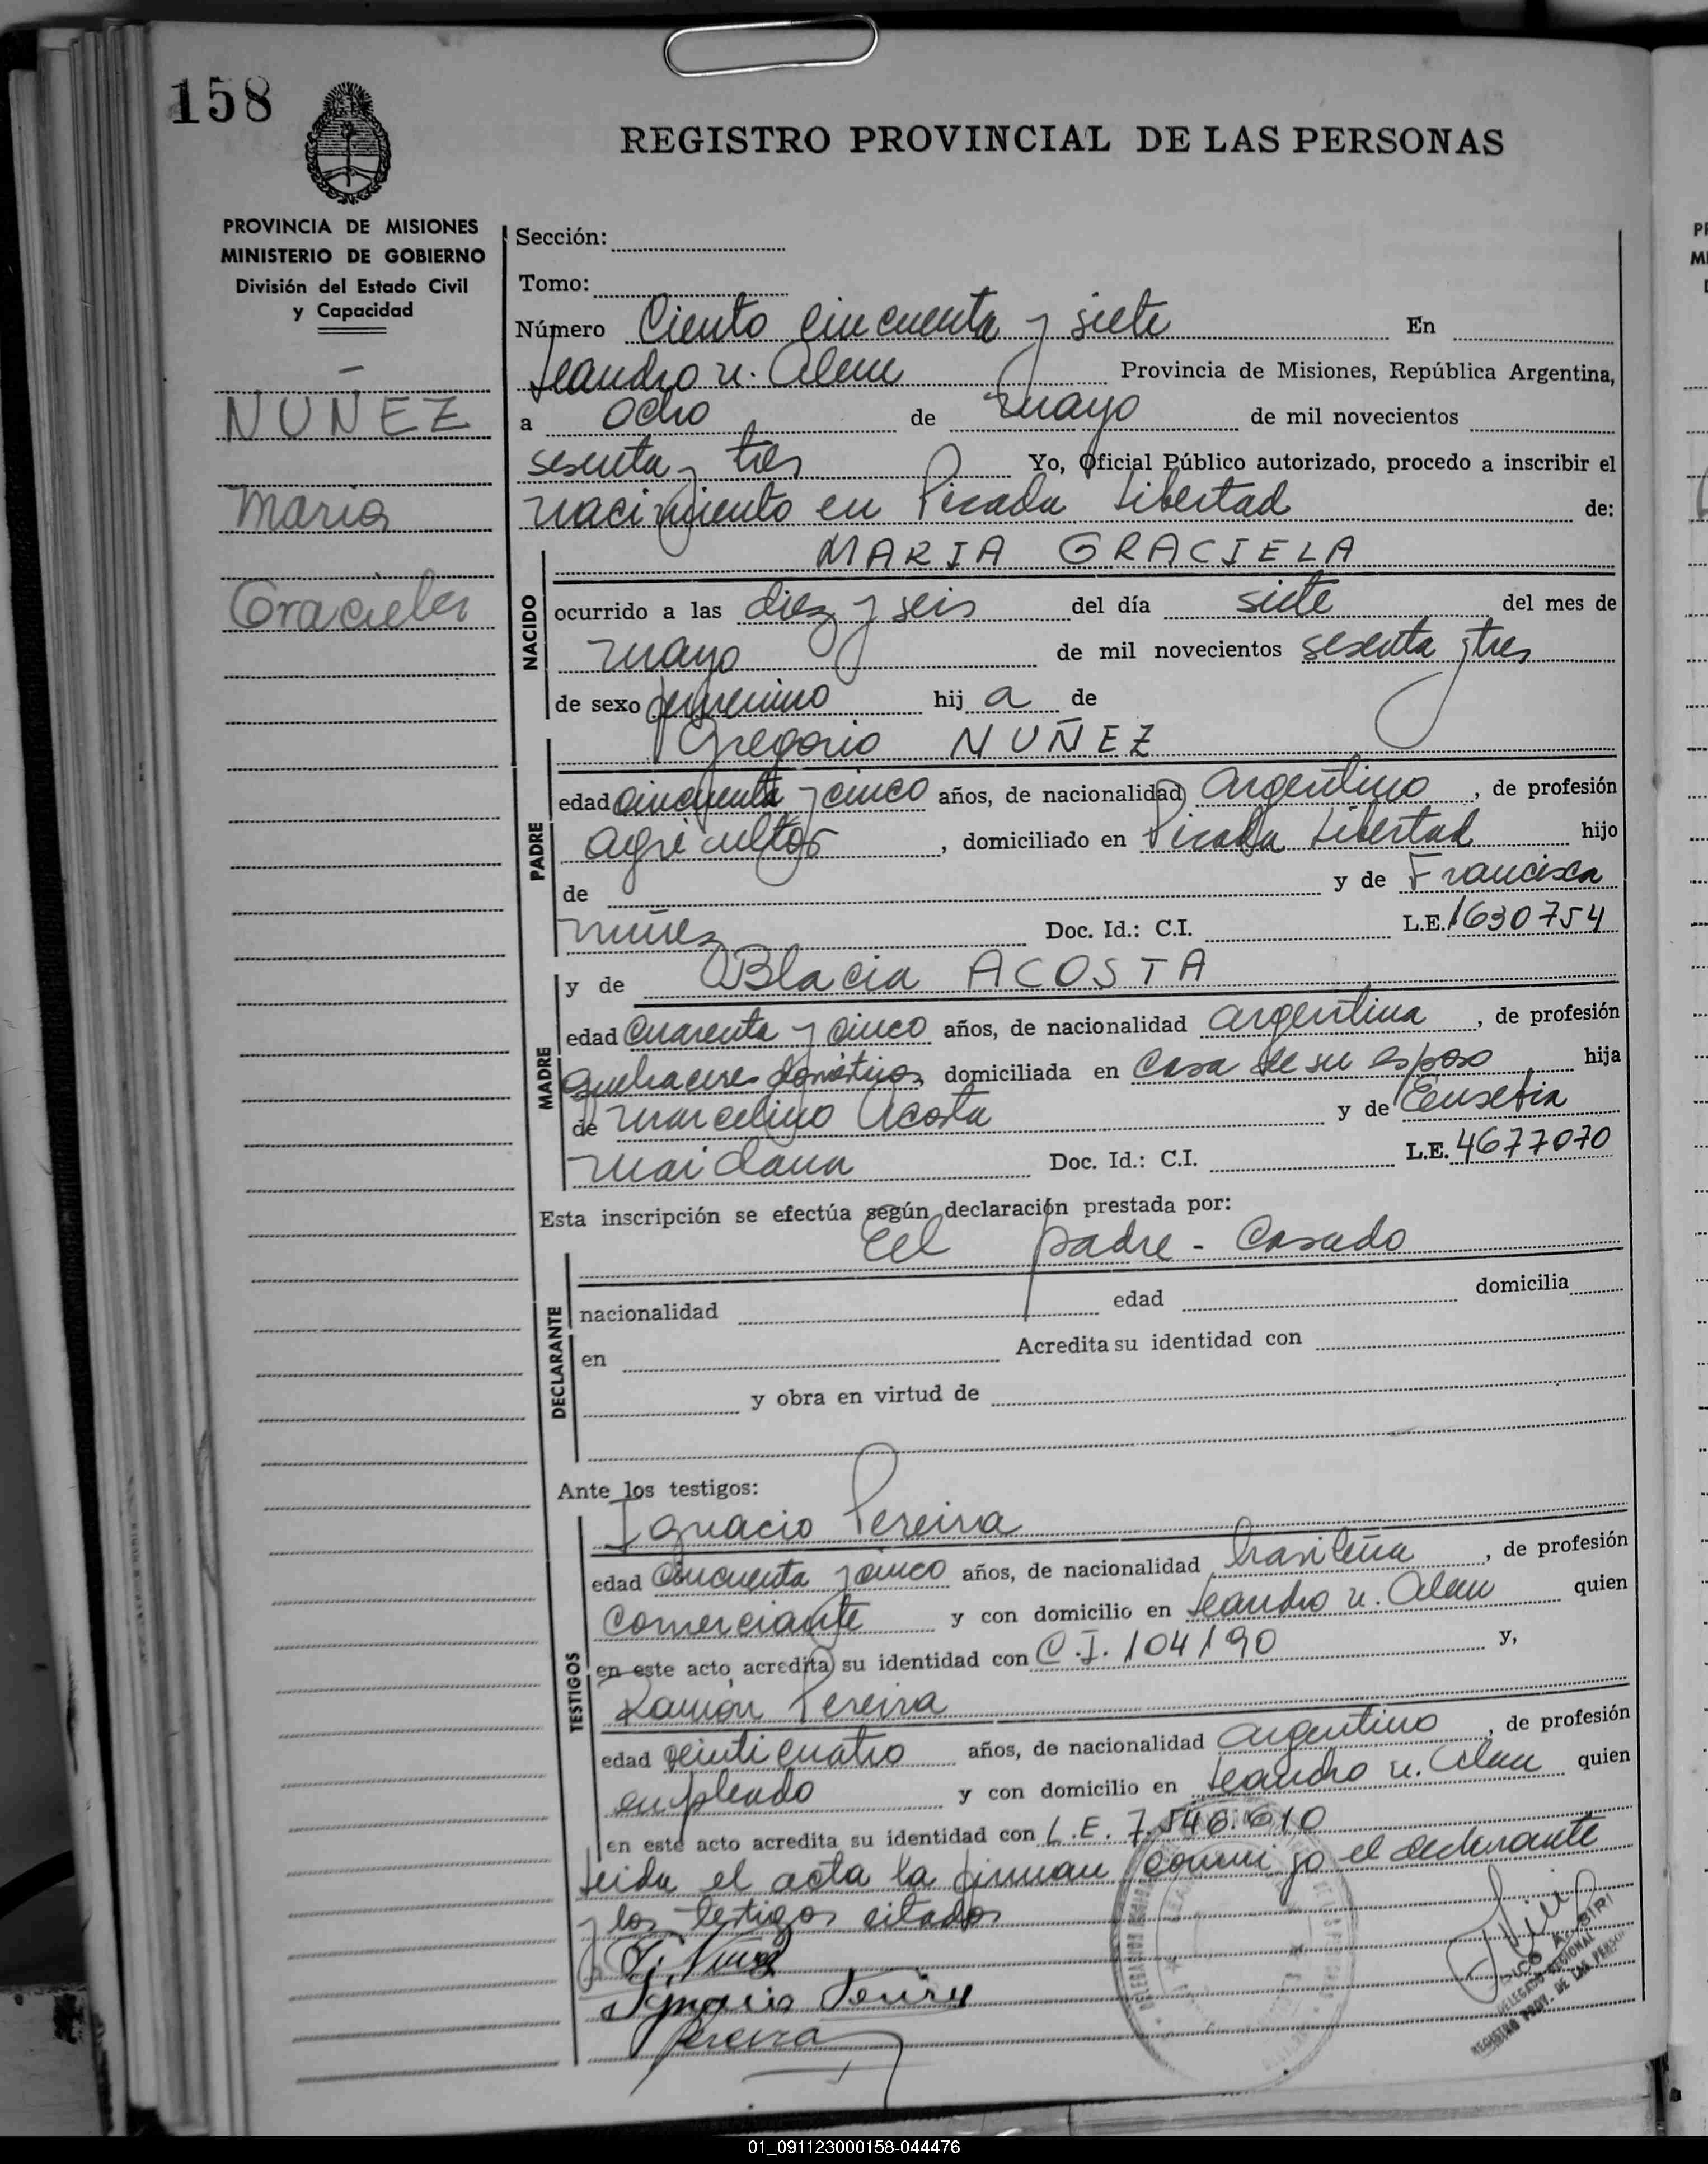 158
REGISTRO PROVINCIAL DE LAS PERSONAS
PROVINCIA DE MISIONES
MINISTERIO DE GOBIERNO
División del Estado Civil
y Capacidad
NUÑEZ
Maria
Graciela
Sección:
Tomo:
Número Ciento cincuenta y siete En
Leandro N. Alem Provincia de Misiones, República Argentina,
a ocho de mayo de mil novecientos
sesenta y tres Yo, Oficial Público autorizado, procedo a inscribir el
nacimiento en Picada Libertad de:
MARIA GRACIELA
NACIDO
ocurrido a las diez y seis del día siete del mes de
mayo de mil novecientos sesenta y tres
de sexo femenino hij a de
Gregorio NUÑEZ
PADRE
edad cincuenta y cinco años, de nacionalidad argentino, de profesión
agricultor, domiciliado en Picada Libertad hijo
de y de Francisca
Nuñez Doc. Id.: C.I. L.E. 1630754
MADRE
y de Blacia ACOSTA
edad cuarenta y cinco años, de nacionalidad argentina, de profesión
quehaceres domésticos, domiciliada en casa de su esposo hija
de Marcelino Acosta y de Eusebia
Maidana Doc. Id.: C.I. L.E. 4677070
Esta inscripción se efectúa según declaración prestada por:
El padre - Casado
DECLARANTE
nacionalidad edad domicilia
en Acredita su identidad con
y obra en virtud de
Ante los testigos:
Ignacio Pereira
TESTIGOS
edad cincuenta y cinco años, de nacionalidad brasileña, de profesión
comerciante y con domicilio en Leandro N. Alem quien
en este acto acredita su identidad con C.I. 104190 y,
Ramón Pereira
edad veinticuatro años, de nacionalidad argentino, de profesión
empleado y con domicilio en Leandro N. Alem quien
en este acto acredita su identidad con L.E. 7.546.610
Leida el acta la firman conmigo el declarante
y los testigos citados
G. Nuñez
Ignacio Pereira
Pereira
DELEGADO REGIONAL
REGISTRO PROV. DE LAS PERSON
01_091123000158-044476